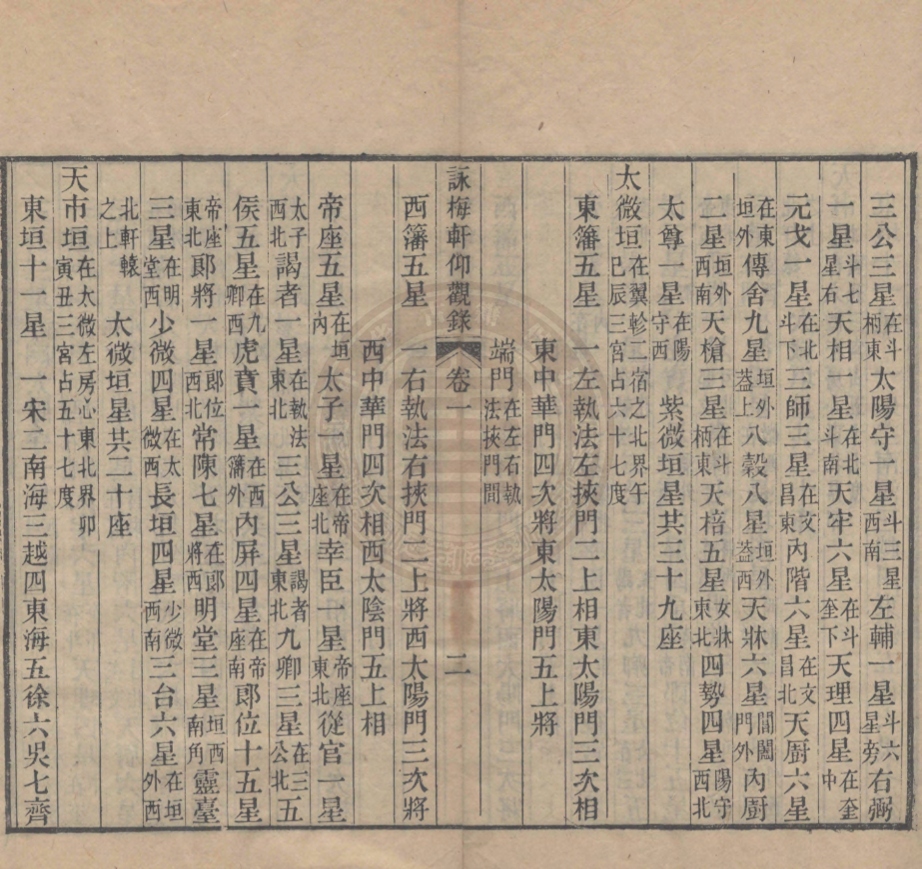 三公三星在斗柄東太陽守一星斗三星西南左輔一星斗六星旁右弼
一星斗七星右天相一星在北斗南天牢六星在斗奎下天理四星在奎中
元戈一星在北斗下三師三星在文昌東內階六星在文昌北天厨六星
在東垣外傳舍九星垣外葢上八穀八星垣外葢西天牀六星閶闔門外內厨
二星垣外西南天槍三星在斗柄東天棓五星女牀東北四勢四星陽守西北
太尊一星在陽守西 紫微垣星共三十九座
太微垣在翼軫二宿之北界午巳辰三宮占六十七度
東籓五星 一左執法左挾門二上相東太陽門三次相
東中華門四次將東太陽門五上將
端門在左右執法挾門間
詠梅軒仰觀錄 卷一 二
西籓五星 一右執法右挾門二上將西太陽門三次將
西中華門四次相西太陰門五上相
帝座五星在垣內太子一星在帝座北幸臣一星帝座東北從官一星
太子西北謁者一星在執法東北三公三星謁者東北九卿三星在三公北五
侯五星在九卿西虎賁一星在西籓外內屏四星在帝座南郎位十五星
帝座東北郎將一星郎位西北常陳七星在郎將西明堂三星垣西南角靈臺
三星在明堂西少微四星在太微西長垣四星少微西南三台六星在垣外西
北軒轅之上 太微垣星共二十座
天市垣在太微左房心東北界卯寅丑三宮占五十七度
東垣十一星 一宋二南海三越四東海五徐六吳七齊